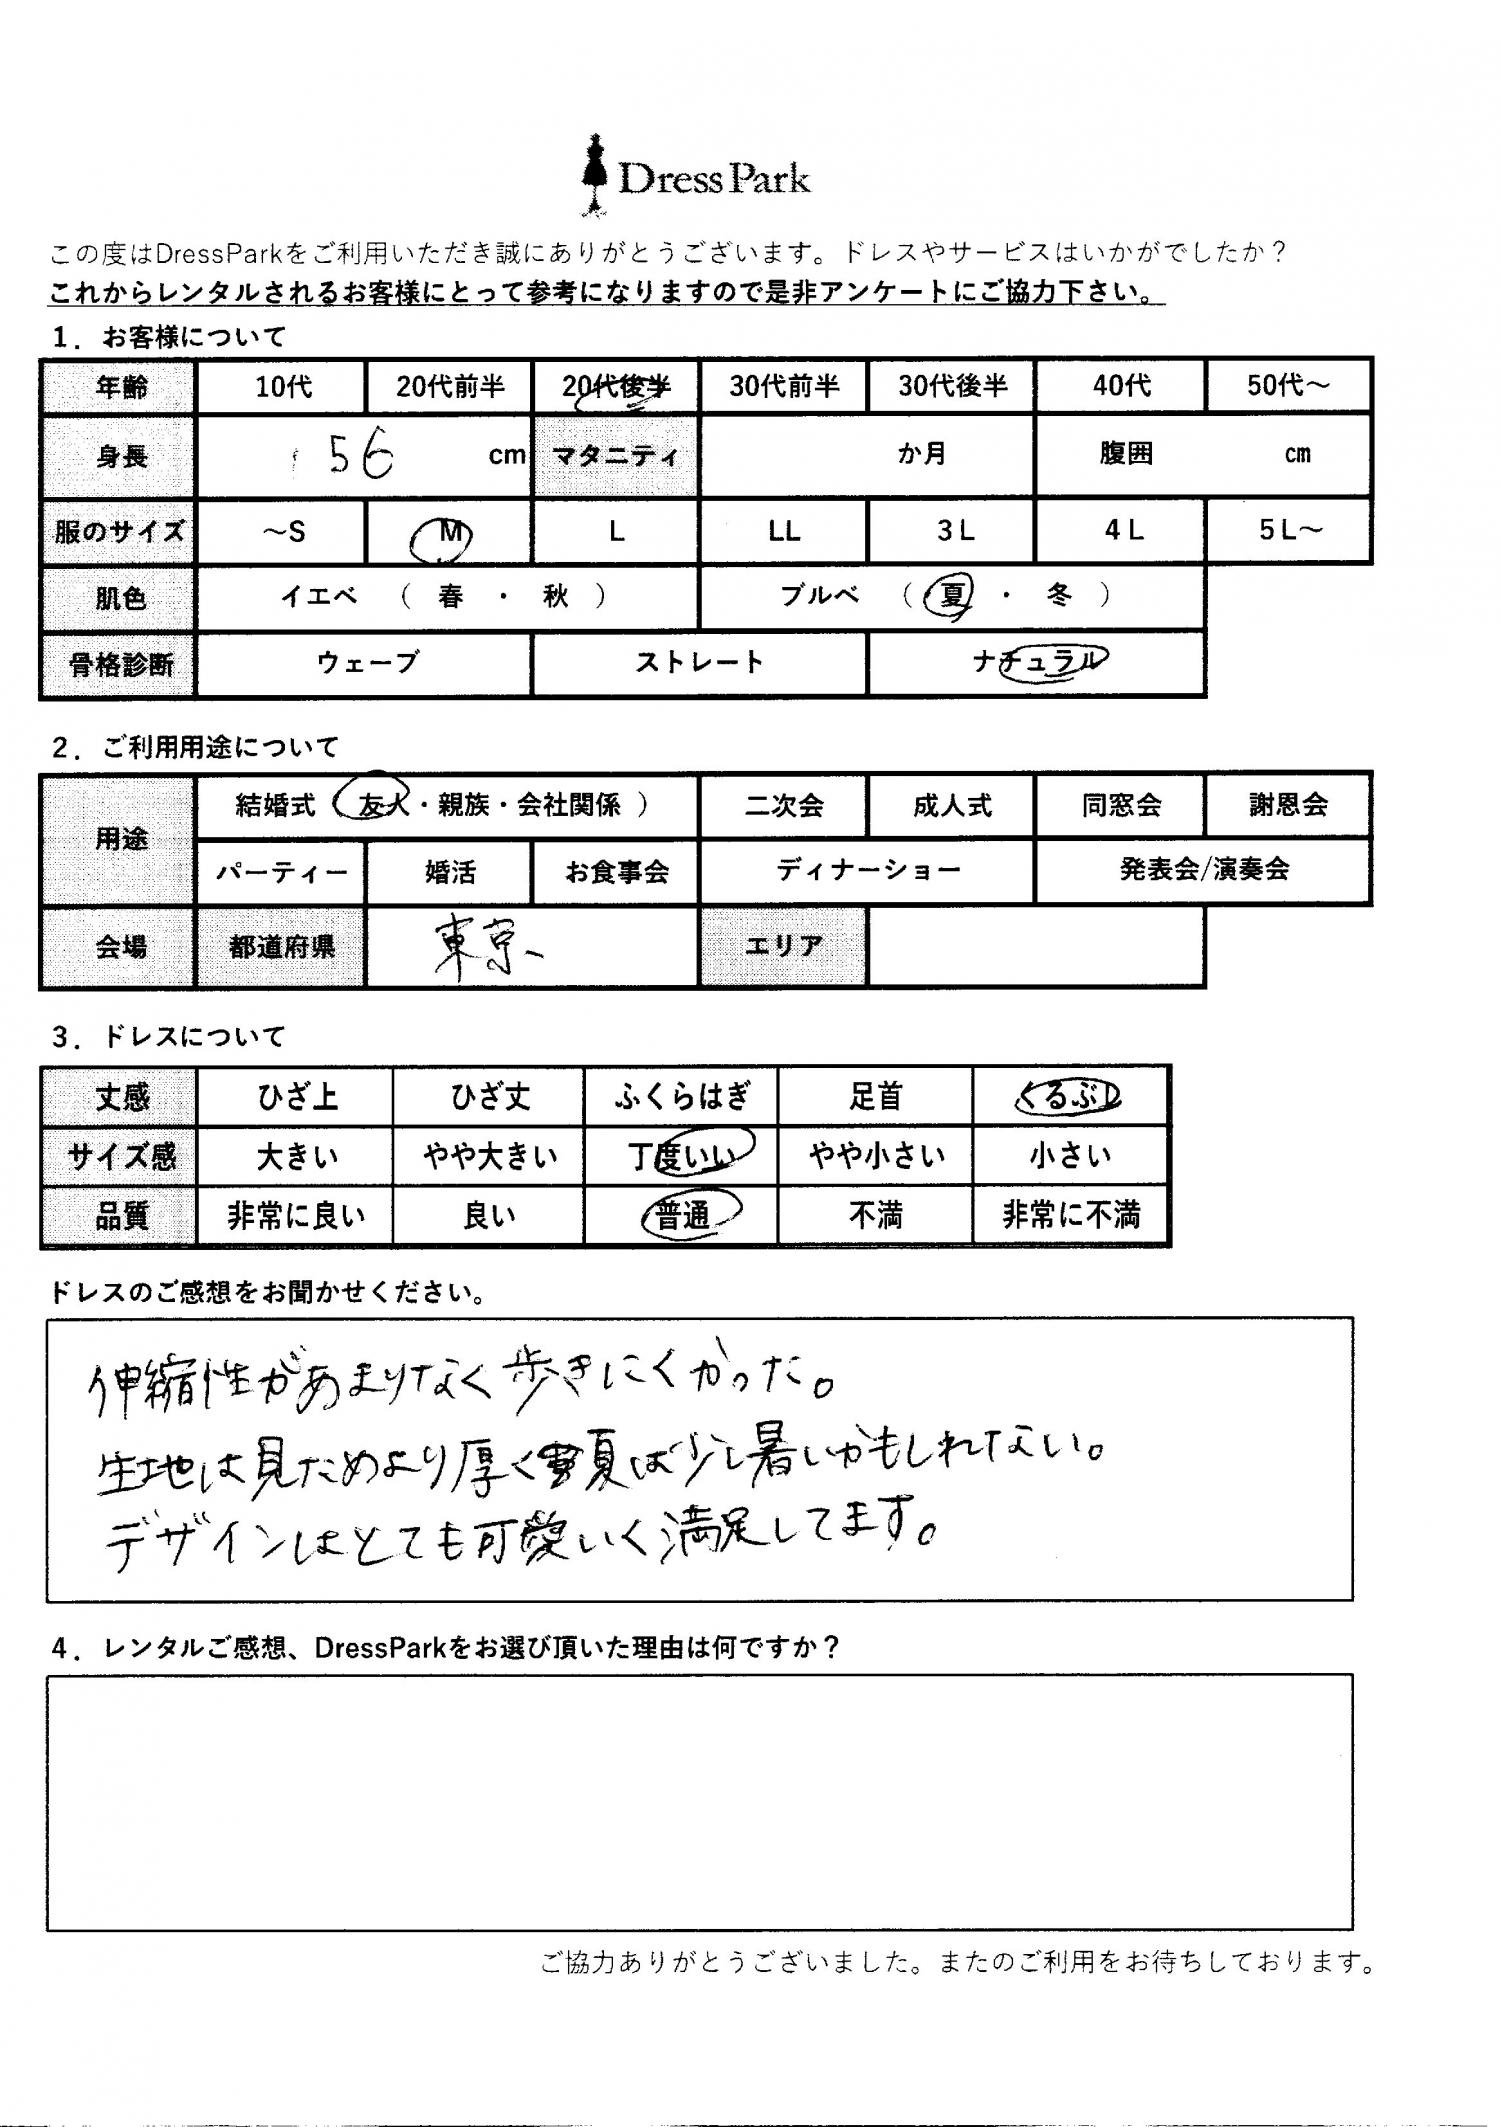 DressPark
この度はDressParkをご利用いただき誠にありがとうございます。ドレスやサービスはいかがでしたか？
これからレンタルされるお客様にとって参考になりますので是非アンケートにご協力下さい。
1．お客様について
年齢 10代 20代前半 20代後半 30代前半 30代後半 40代 50代～
身長 156 cm マタニティ か月 腹囲 cm
服のサイズ ～S M L LL 3L 4L 5L～
肌色 イエベ （ 春 ・ 秋 ） ブルベ （ 夏 ・ 冬 ）
骨格診断 ウェーブ ストレート ナチュラル
2．ご利用用途について
用途 結婚式（ 友人・親族・会社関係 ） 二次会 成人式 同窓会 謝恩会
パーティー 婚活 お食事会 ディナーショー 発表会/演奏会
会場 都道府県 東京 エリア
3．ドレスについて
丈感 ひざ上 ひざ丈 ふくらはぎ 足首 くるぶし
サイズ感 大きい やや大きい 丁度いい やや小さい 小さい
品質 非常に良い 良い 普通 不満 非常に不満
ドレスのご感想をお聞かせください。
伸縮性があまりなく歩きにくかった。
生地は見ためより厚く夏は少し暑いかもしれない。
デザインはとても可愛いく満足してます。
4．レンタルご感想、DressParkをお選び頂いた理由は何ですか？
ご協力ありがとうございました。またのご利用をお待ちしております。